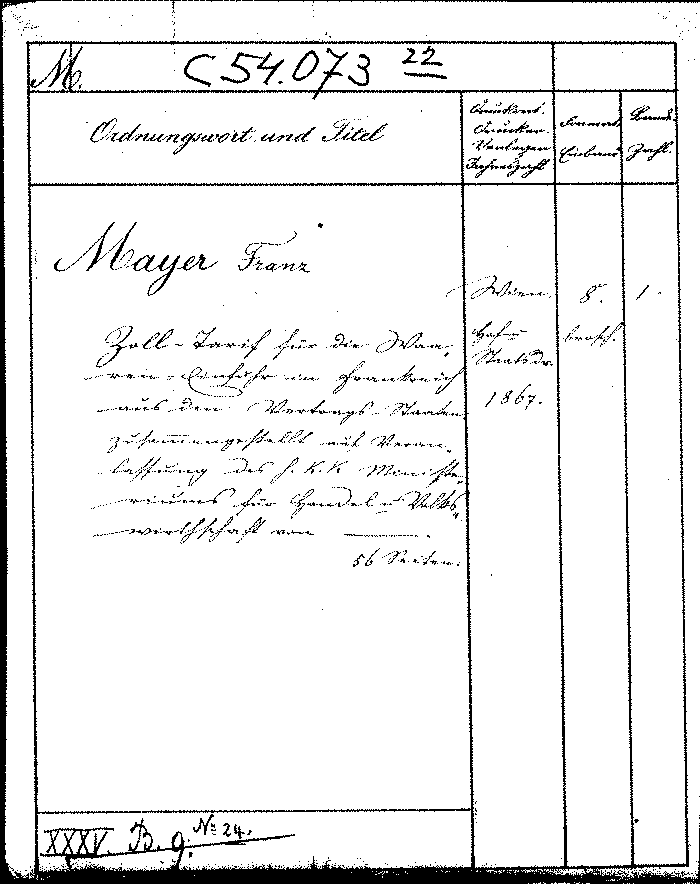 M.
C 54.073 22
Ordnungswort und Titel
Druckort.
Drucker.
Verleger.
Jahreszahl
Format.
Einband
Band-
Zahl.
Mayer Franz
Wien.
8.
1.
Zoll-Tarif für die Waa-
ren-Einfuhr in Frankreich
aus den Vertrags-Staaten
zusammengestellt auf Veran-
lassung des h. k. k. Ministe-
riums für Handel u Volks-
wirthschaft von ———.
56 Seiten.
Hof- u
Staatsdr.
1867.
brosch.
XXXV. B. 9. No 24.